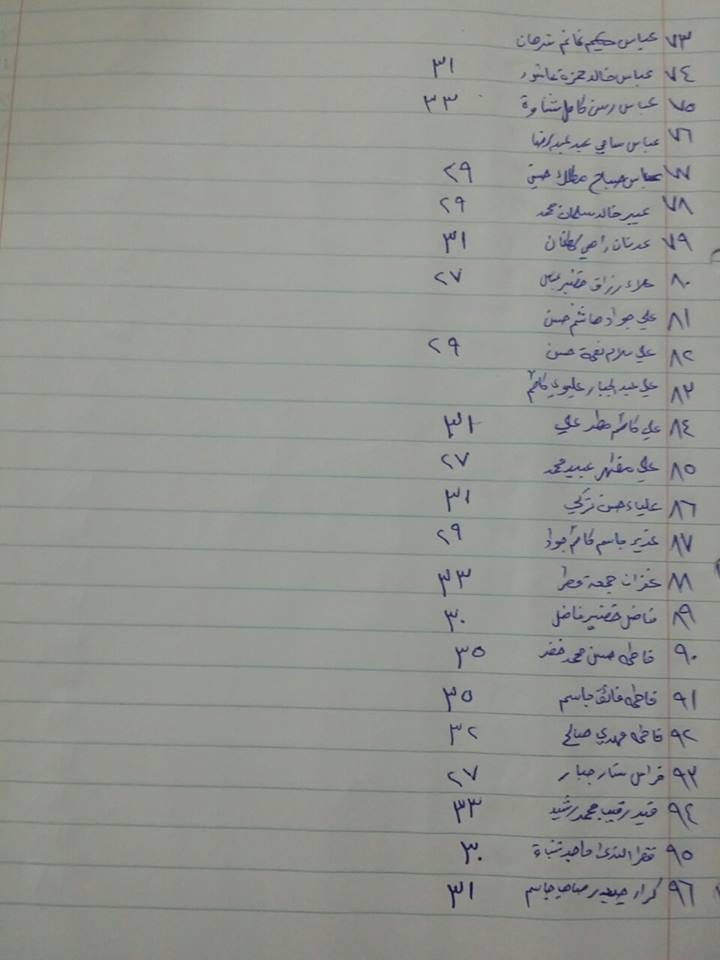 ٧٣ عباس حكيم غانم شرهان
٧٤ عباس خالد حمزة عاشور ٣١
٧٥ عباس رسن كامل شناوة ٣٣
٧٦ عباس سامي عبد عبد الرضا
٧٧ عباس صباح حسين ٢٩
٧٨ عبير خالد سلمان محمد ٢٩
٧٩ عدنان راضي ٣١
٨٠ علاء رزاق خضير عباس ٢٧
٨١ علي جواد هاشم حسن
٨٢ علي سلام نعمة حسن ٢٩
٨٣ علي عبد الجبار عليوي كاظم
٨٤ علي كاظم مطر علي ٣١
٨٥ علي عبيد محمد ٢٧
٨٦ علياء حسن تركي ٣١
٨٧ غدير جاسم كاظم جواد ٢٩
٨٨ غفران جمعة مطر ٣٣
٨٩ فاضل خضير فاضل ٣٠
٩٠ فاطمة حسن محمد خضر ٣٥
٩١ فاطمة فائق جاسم ٣٥
٩٢ فاطمة مهدي صالح ٣٢
٩٣ فراس ستار جبار ٢٧
٩٤ محمد رشيد ٣٣
٩٥ قطر الندى ماجد ٣٠
٩٦ كرار حيدر صاحب جاسم ٣١